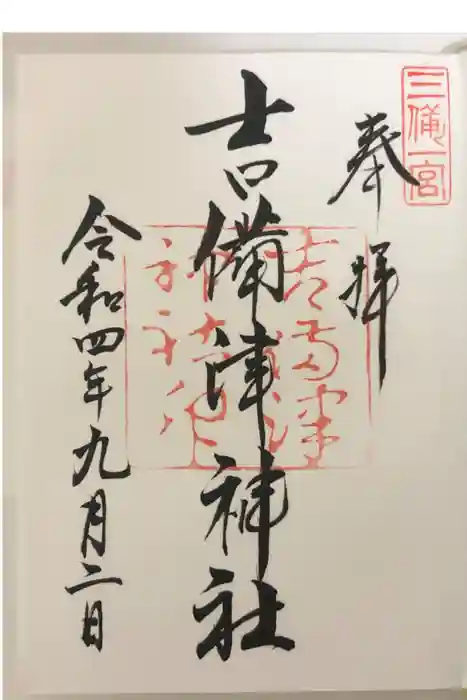 三備一宮
奉拝
吉備津神社
令和四年九月二日